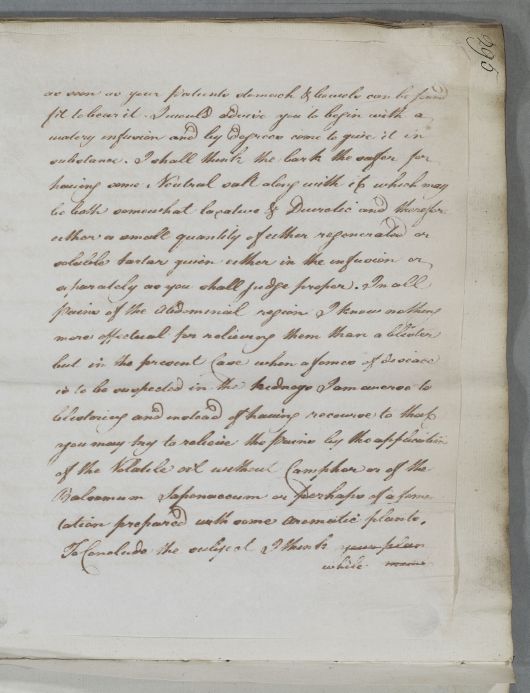 295
as soon as your patients stomach & bowels can be found
fit to bear it. I would advise you to begin with a
watery infusion and by degrees come to give it in
substance. I shall think the bark the safer for
having some Neutral salt along with it which may
be both somewhat laxative & Diuretic and therefor
either a small quantity of either regenerated or
soluble tartar given either in the infusion or
separately as you shall judge proper. In all
pains of the Abdominal region I know nothing
more effectual for relieving them than a blister
but in the present Case when a disease
is to be suspected in the kidneys I am averse to
blistering and instead of having recourse to that
you may try to relieve the pains by the application
of the Volatile oil without Camphor or of the
Balsamum Saponaceum or perhaps of a fome
tation prepared with some aromatic plants.
To Conclude the subject I think your plan
while